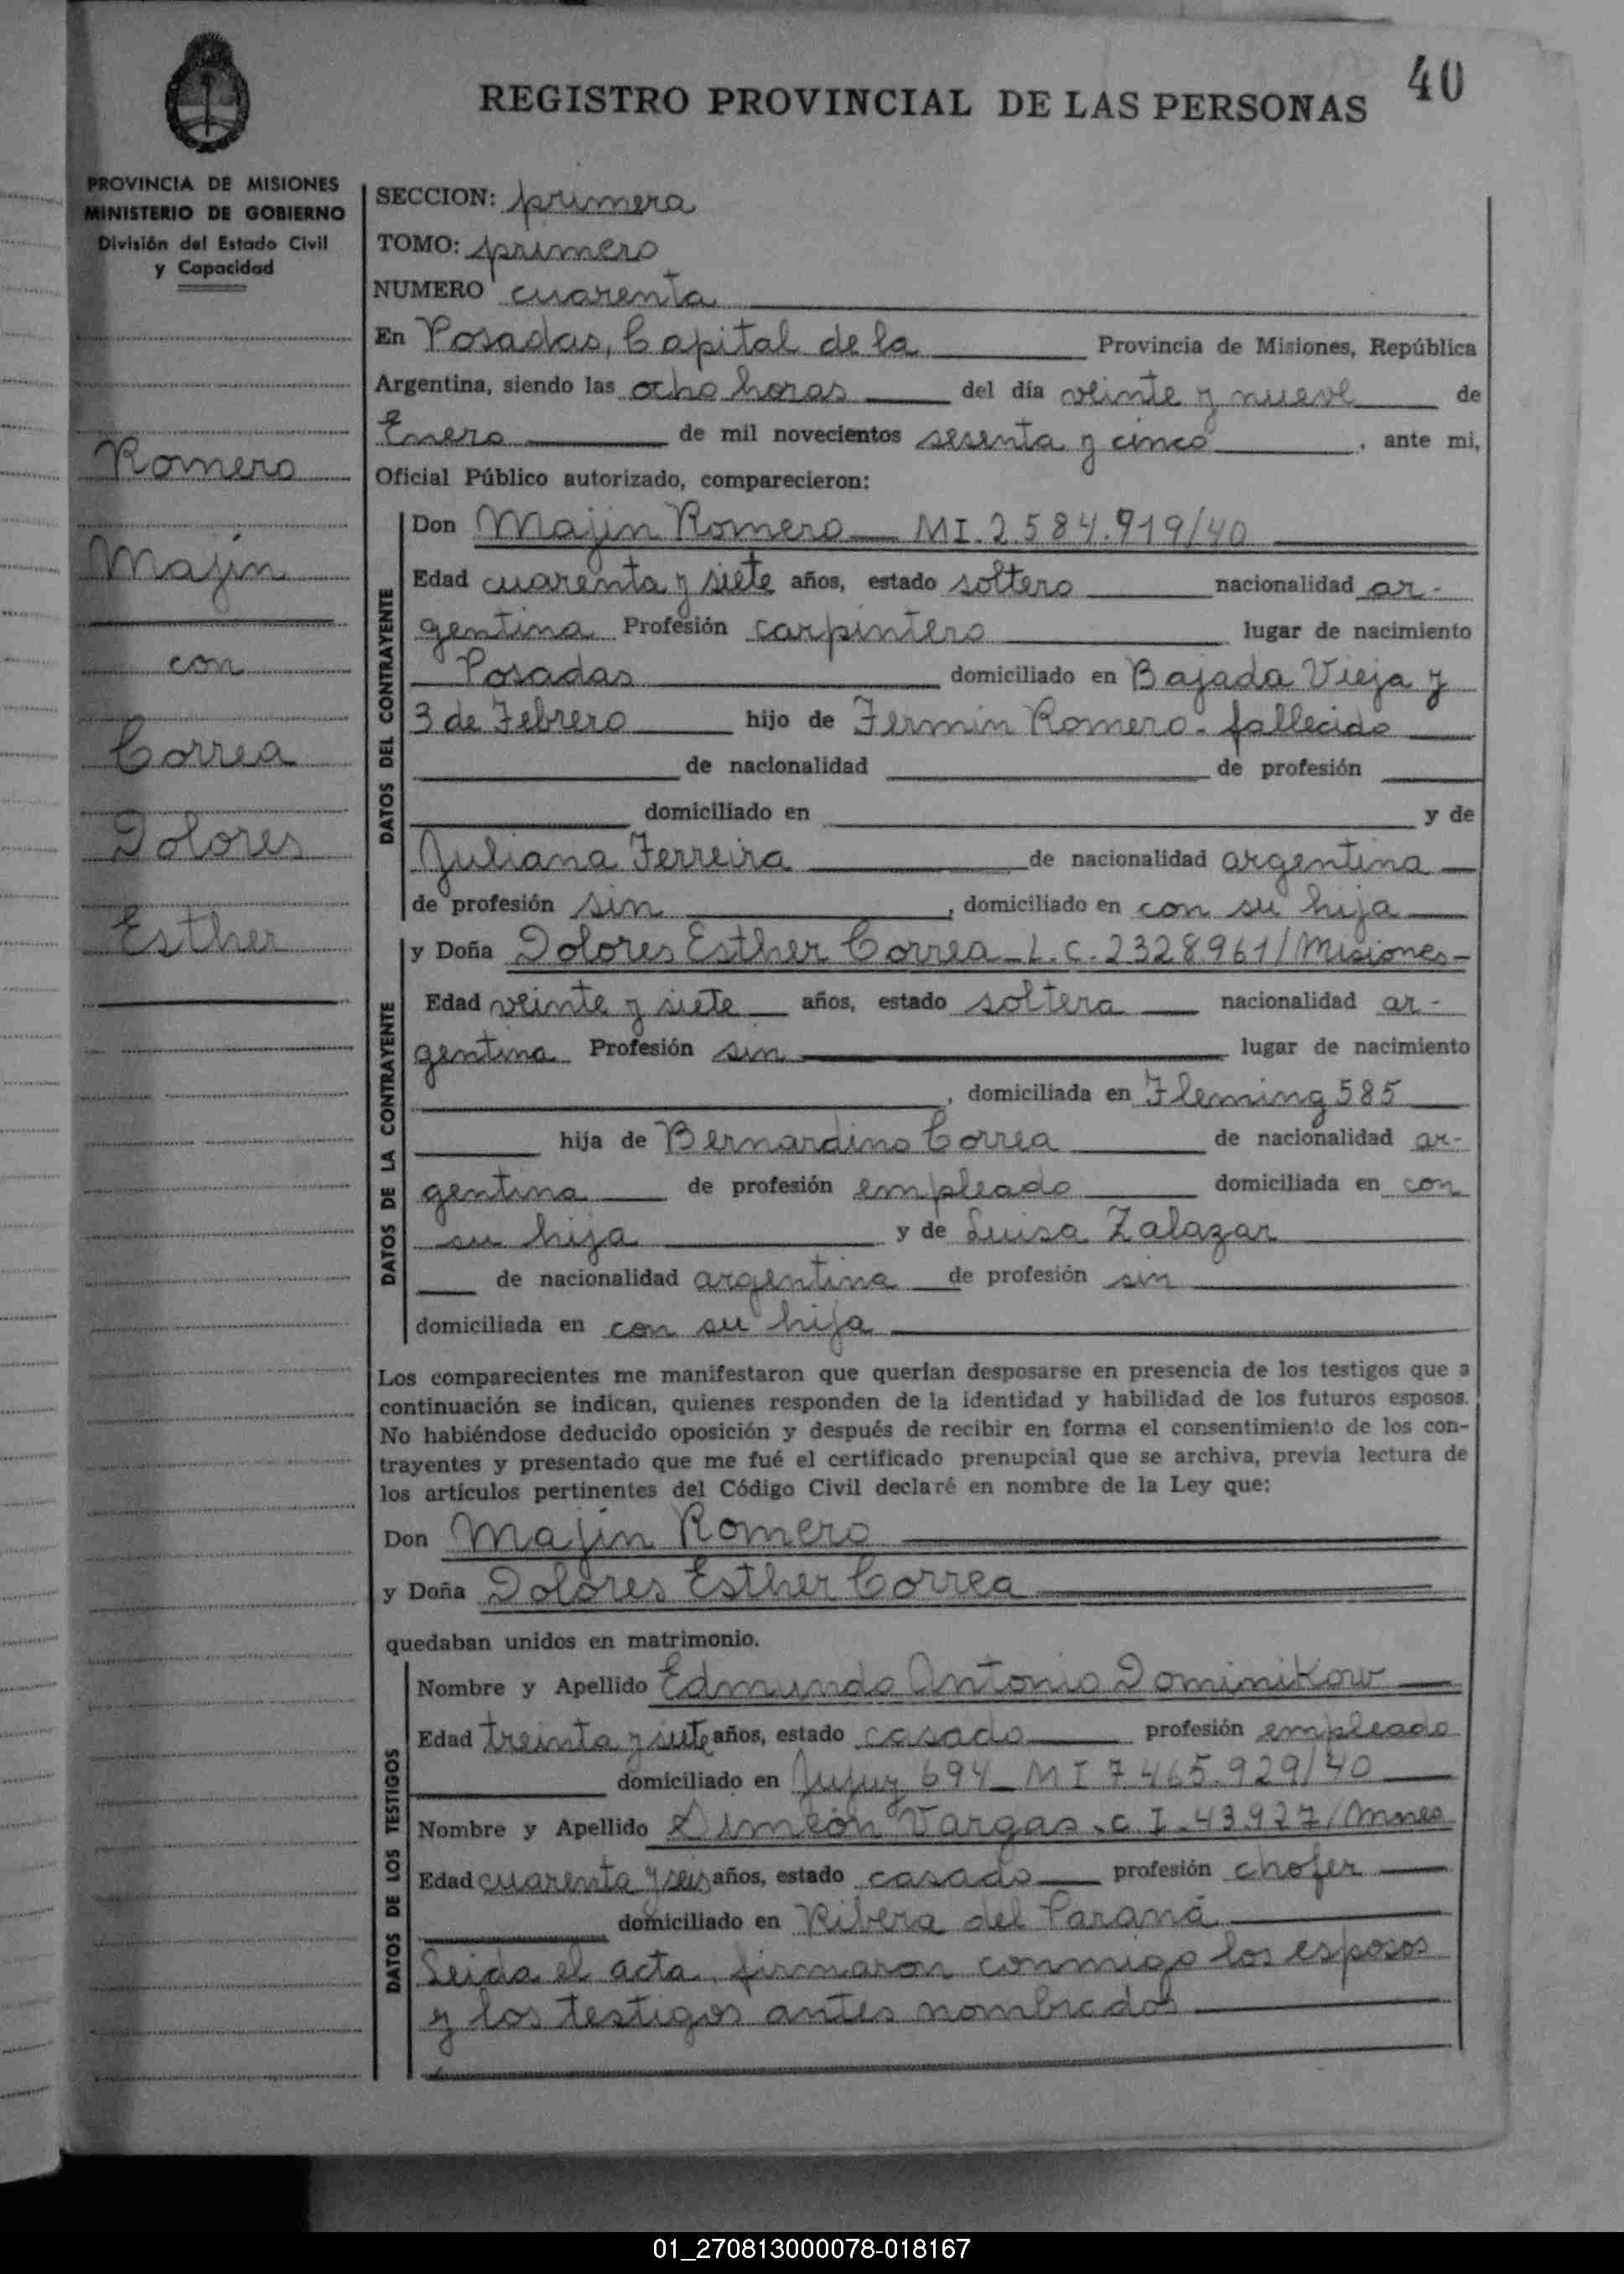 40
REGISTRO PROVINCIAL DE LAS PERSONAS
PROVINCIA DE MISIONES
MINISTERIO DE GOBIERNO
División del Estado Civil
y Capacidad
Romero
Majin
con
Correa
Dolores
Esther
SECCION: primera
TOMO: primero
NUMERO cuarenta
En Posadas, Capital de la Provincia de Misiones, República
Argentina, siendo las ocho horas del día veinte y nueve de
Enero de mil novecientos sesenta y cinco, ante mi,
Oficial Público autorizado, comparecieron:
DATOS DEL CONTRAYENTE
Don Majin Romero — MI. 2.584.919/40
Edad cuarenta y siete años, estado soltero nacionalidad ar-
gentina Profesión carpintero lugar de nacimiento
Posadas domiciliado en Bajada Vieja y
3 de Febrero hijo de Fermin Romero - fallecido
de nacionalidad de profesión
domiciliado en y de
Juliana Ferreira de nacionalidad argentina
de profesión sin, domiciliado en con su hija
DATOS DE LA CONTRAYENTE
y Doña Dolores Esther Correa - L.C. 2328961/Misiones-
Edad veinte y siete años, estado soltera nacionalidad ar-
gentina Profesión sin lugar de nacimiento
, domiciliada en Fleming 585
hija de Bernardino Correa de nacionalidad ar-
gentina de profesión empleado domiciliada en con
su hija y de Luisa Zalazar
de nacionalidad argentina de profesión sin
domiciliada en con su hija
Los comparecientes me manifestaron que querían desposarse en presencia de los testigos que a
continuación se indican, quienes responden de la identidad y habilidad de los futuros esposos.
No habiéndose deducido oposición y después de recibir en forma el consentimiento de los con-
trayentes y presentado que me fué el certificado prenupcial que se archiva, previa lectura de
los artículos pertinentes del Código Civil declaré en nombre de la Ley que:
Don Majin Romero
y Doña Dolores Esther Correa
quedaban unidos en matrimonio.
DATOS DE LOS TESTIGOS
Nombre y Apellido Edmundo Antonio Dominikow
Edad treinta y siete años, estado casado profesión empleado
domiciliado en Jujuy 694 - MI 7.465.929/40
Nombre y Apellido Simeón Vargas - C.I. 43927/Mnes
Edad cuarenta y seis años, estado casado profesión chofer
domiciliado en Ribera del Paraná
Leida el acta, firmaron conmigo los esposos
y los testigos antes nombrados
01_270813000078-018167